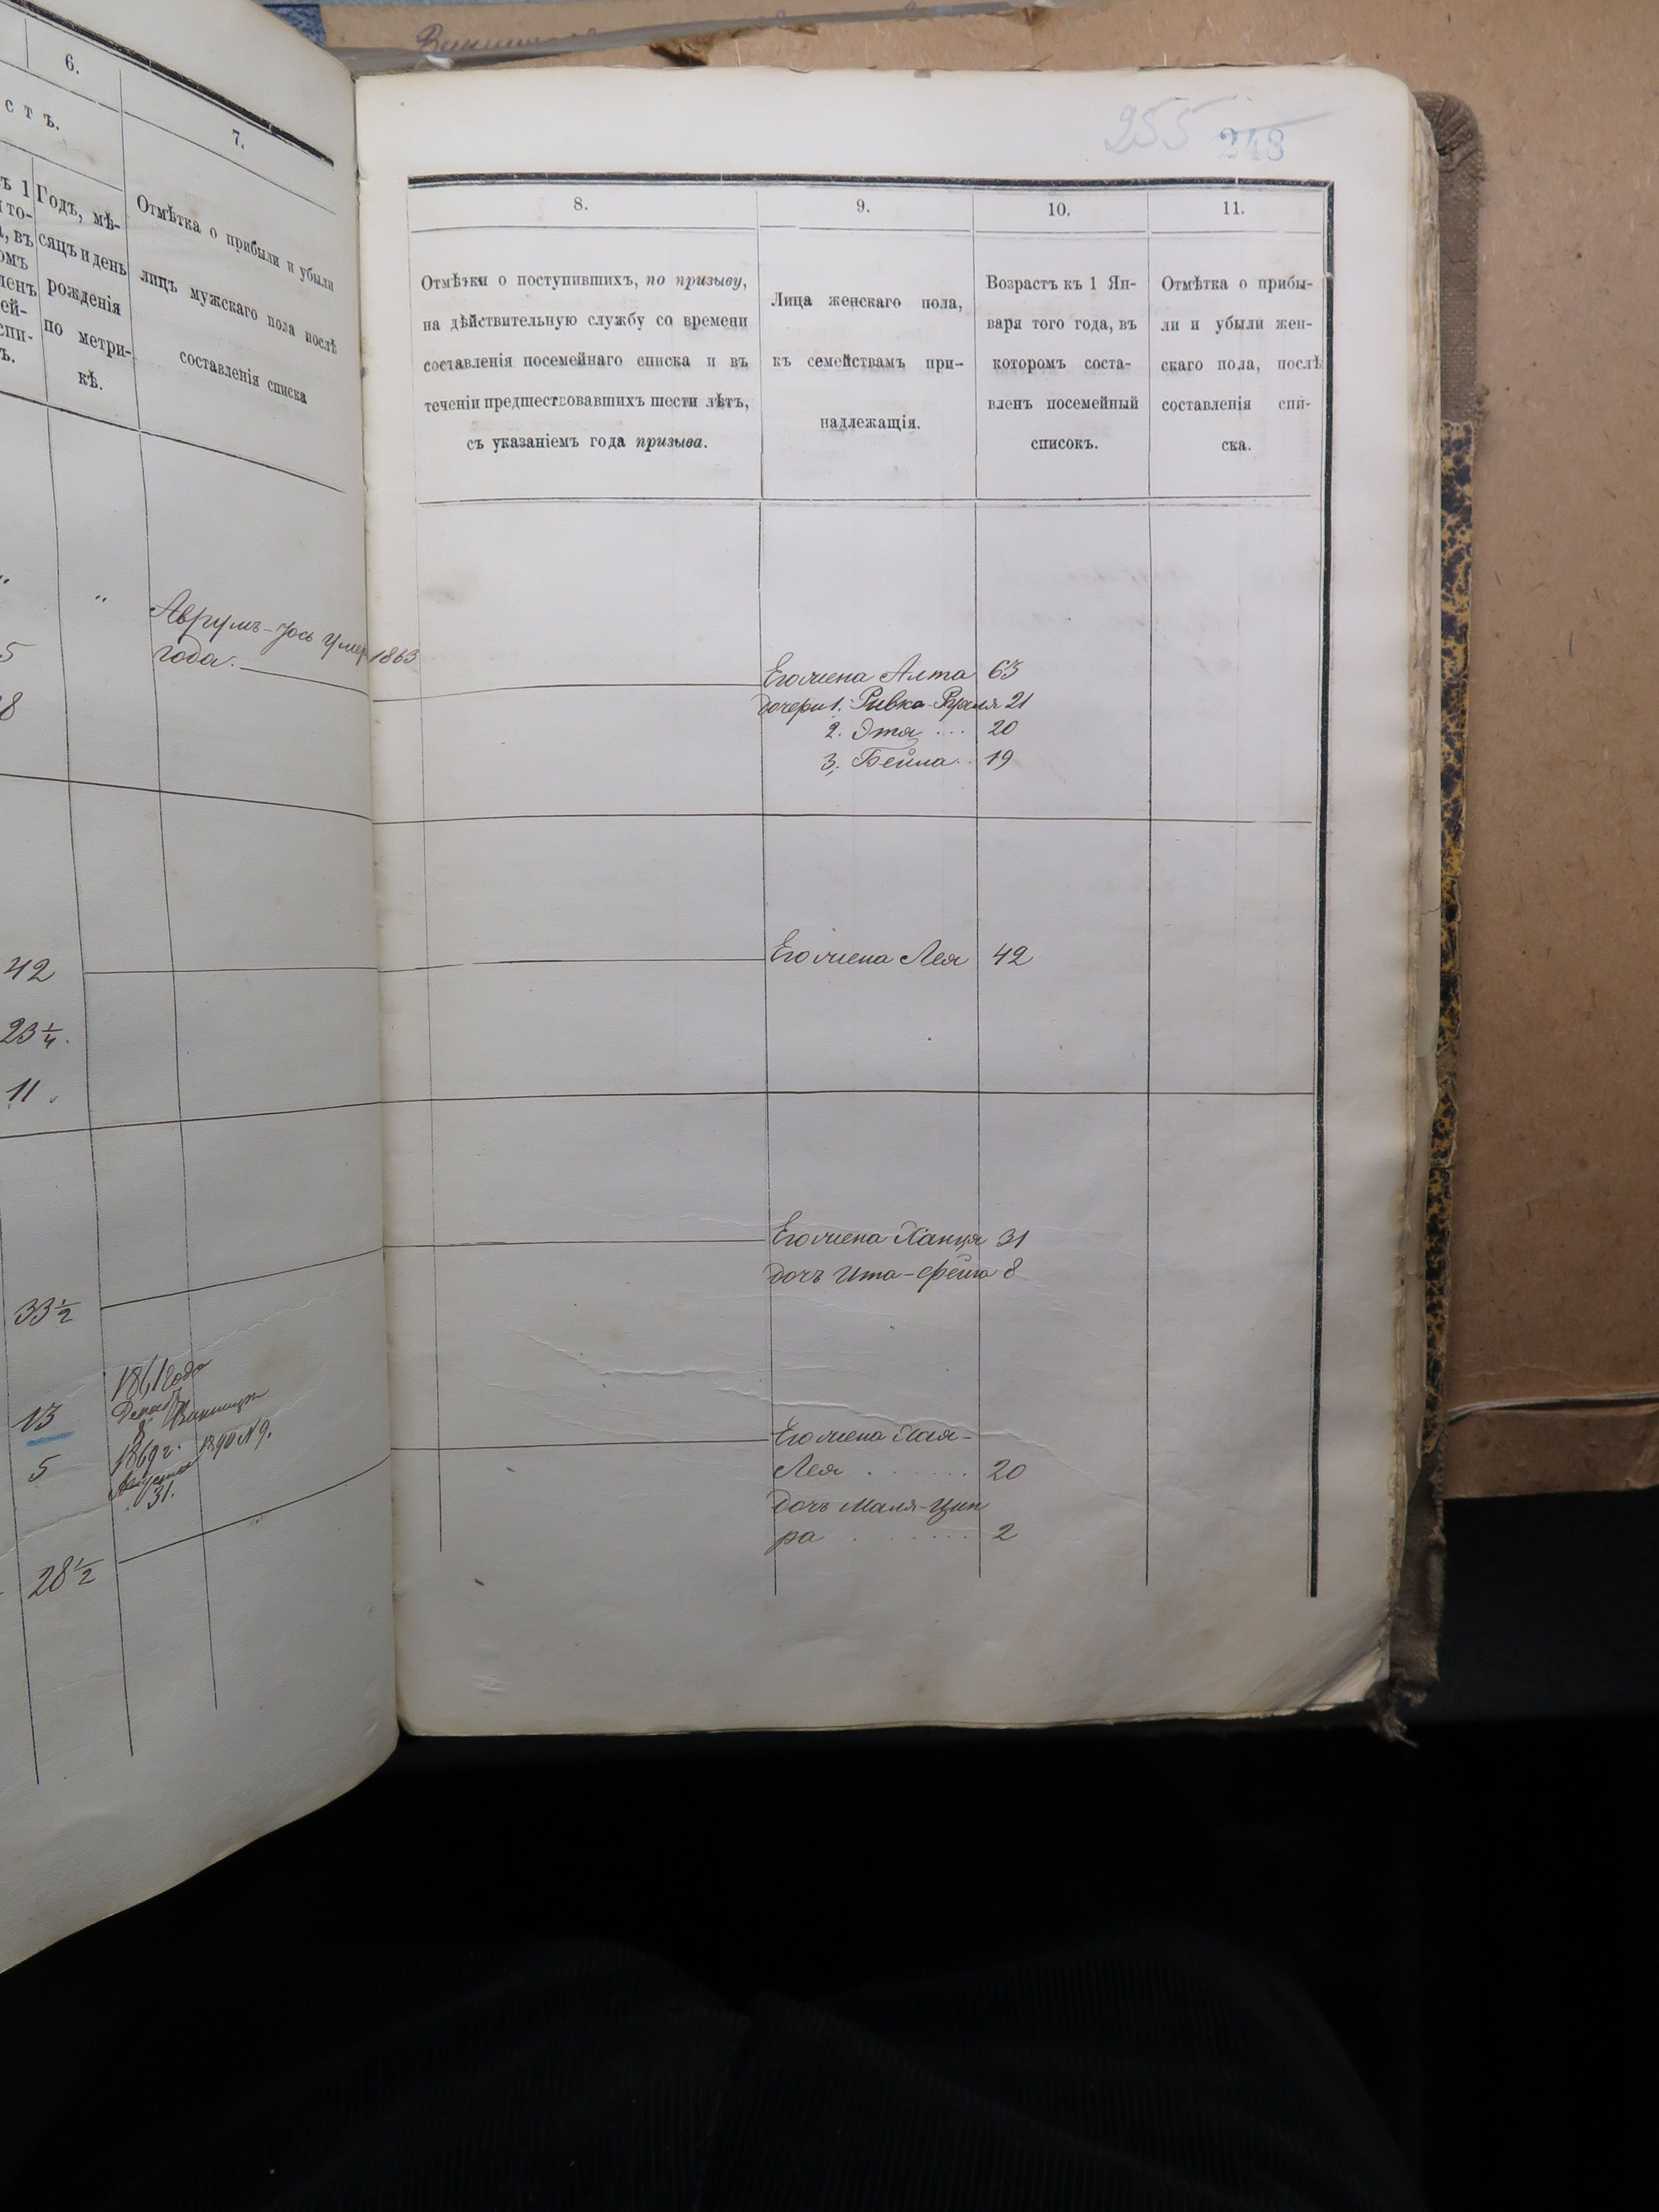 255 248
6.
7.
с т ъ.
ъ 1
Годъ, мѣ-
сяцъ и день
рожденія
по метри-
кѣ.
Отмѣтка о прибыли и убыли
лицъ мужскаго пола послѣ
составленія списка
Аврумъ-Іось умер 1863
года.
5
8
42
23 1/4.
11.
33 1/2
13
1861 года
8
5
1869 г.
Августа
31.
28 1/2
8.
Отмѣтки о поступившихъ, по призыву,
на дѣйствительную службу со времени
составленія посемейнаго списка и въ
теченіи предшествовавшихъ шести лѣтъ,
съ указаніемъ года призыва.
9.
Лица женскаго пола,
къ семействамъ при-
надлежащія.
10.
Возрастъ къ 1 Ян-
варя того года, въ
которомъ соста-
вленъ посемейный
списокъ.
11.
Отмѣтка о прибы-
ли и убыли жен-
скаго пола, послѣ
составленія спи-
ска.
Его жена Алта 63
дочери 1. Ривка 21
2. Этя ... 20
3. Бейла .. 19
Его жена Лея 42
Его жена Ханця 31
дочъ Ита-Фейга 8
Его жена Хая-
Лея . . . . . . 20
дочъ Маля-Цип
ра . . . . . . 2